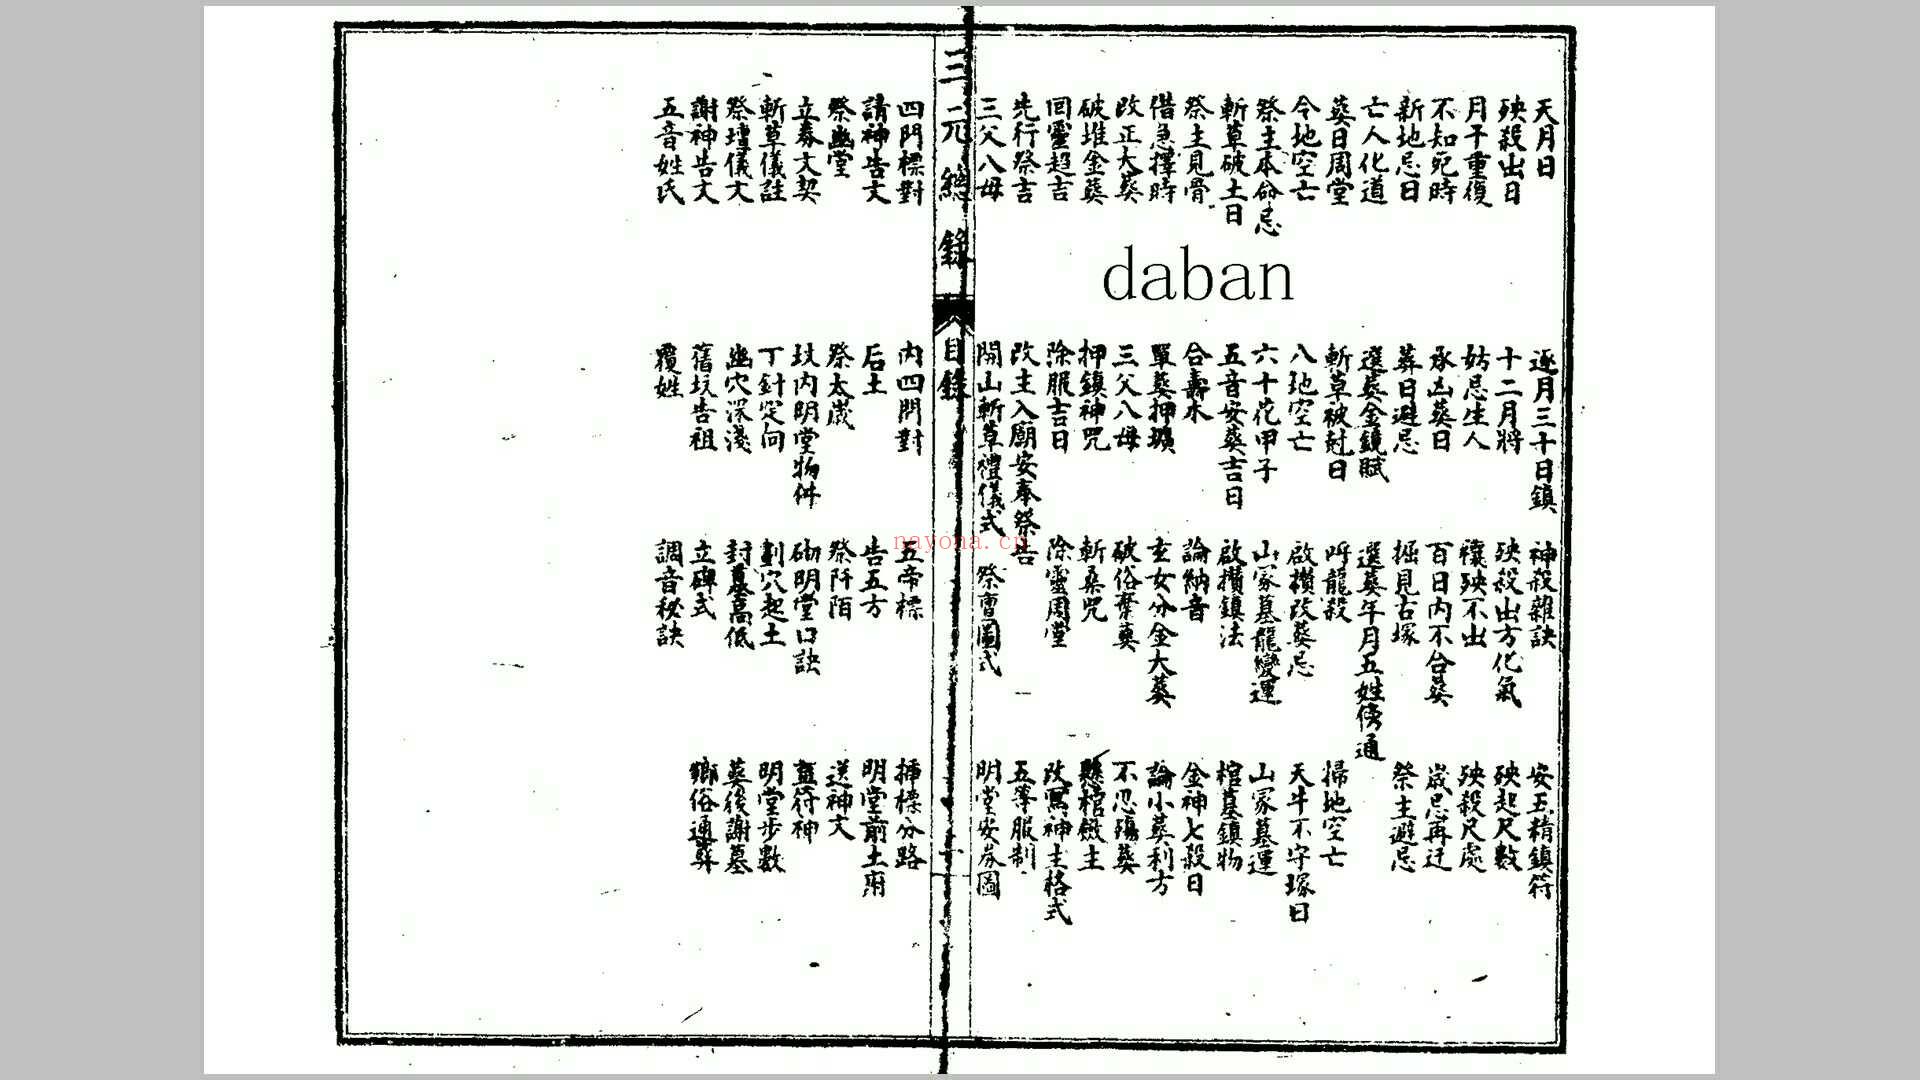 天月日 逐月三十日鎮 神殺雜訣 安五精鎮符
殃殺出日 十二月將 殃殺出方化氣 殃起尺數
月干重復 姑忌生人 禳殃不出 殃殺尺處
不知死時 承凶葬日 百日内不合葬 歲忌再迁
新地忌日 葬日避忌 掘見古塚 祭主避忌
亡人化道 選葬金鏡賦 選葬年月五姓傍通
葬日周堂 斬草破尅日 呼龍殺 掃地空亡
今地空亡 八地空亡 啟攢改葬忌 天牛不守塚日
祭主本命忌 六十花甲子 山冢墓龍變運 山冢墓運
斬草破土日 五音安葬吉日 啟攢鎮法 棺墓鎮物
祭主見骨 合壽木 論納音 金神七殺日
借急擇時 單葬押壙 玄女分金大葬 論小葬利方
改正大葬 三父八母 破俗葬 不忍殤葬
破堆金葬 押鎮神咒 斬桑咒 懸棺㸃主
回靈超吉 除服吉日 除靈周堂 改寫神主格式
先行祭吉 改主入廟安奉祭告 五等服制
三父八母 開山斬草禮儀式 祭圖式 明堂安券圖
三元總錄 目錄
四門標對 内四門對 五帝標 插標分路
請神告文 后土 告五方 明堂前土府
祭幽堂 祭太歲 祭阡陌 送神文
立券文契 坟内明堂物件 砌明堂口訣 蓋符神
斬草儀註 丁針定向 劃穴起土 明堂步數
祭壇儀文 幽穴深淺 封墓高低 葬後謝墓
謝神告文 舊坟告祖 立碑式 鄉俗通葬
五音姓氏 覆姓 調音秘訣
daban
nayona.cn